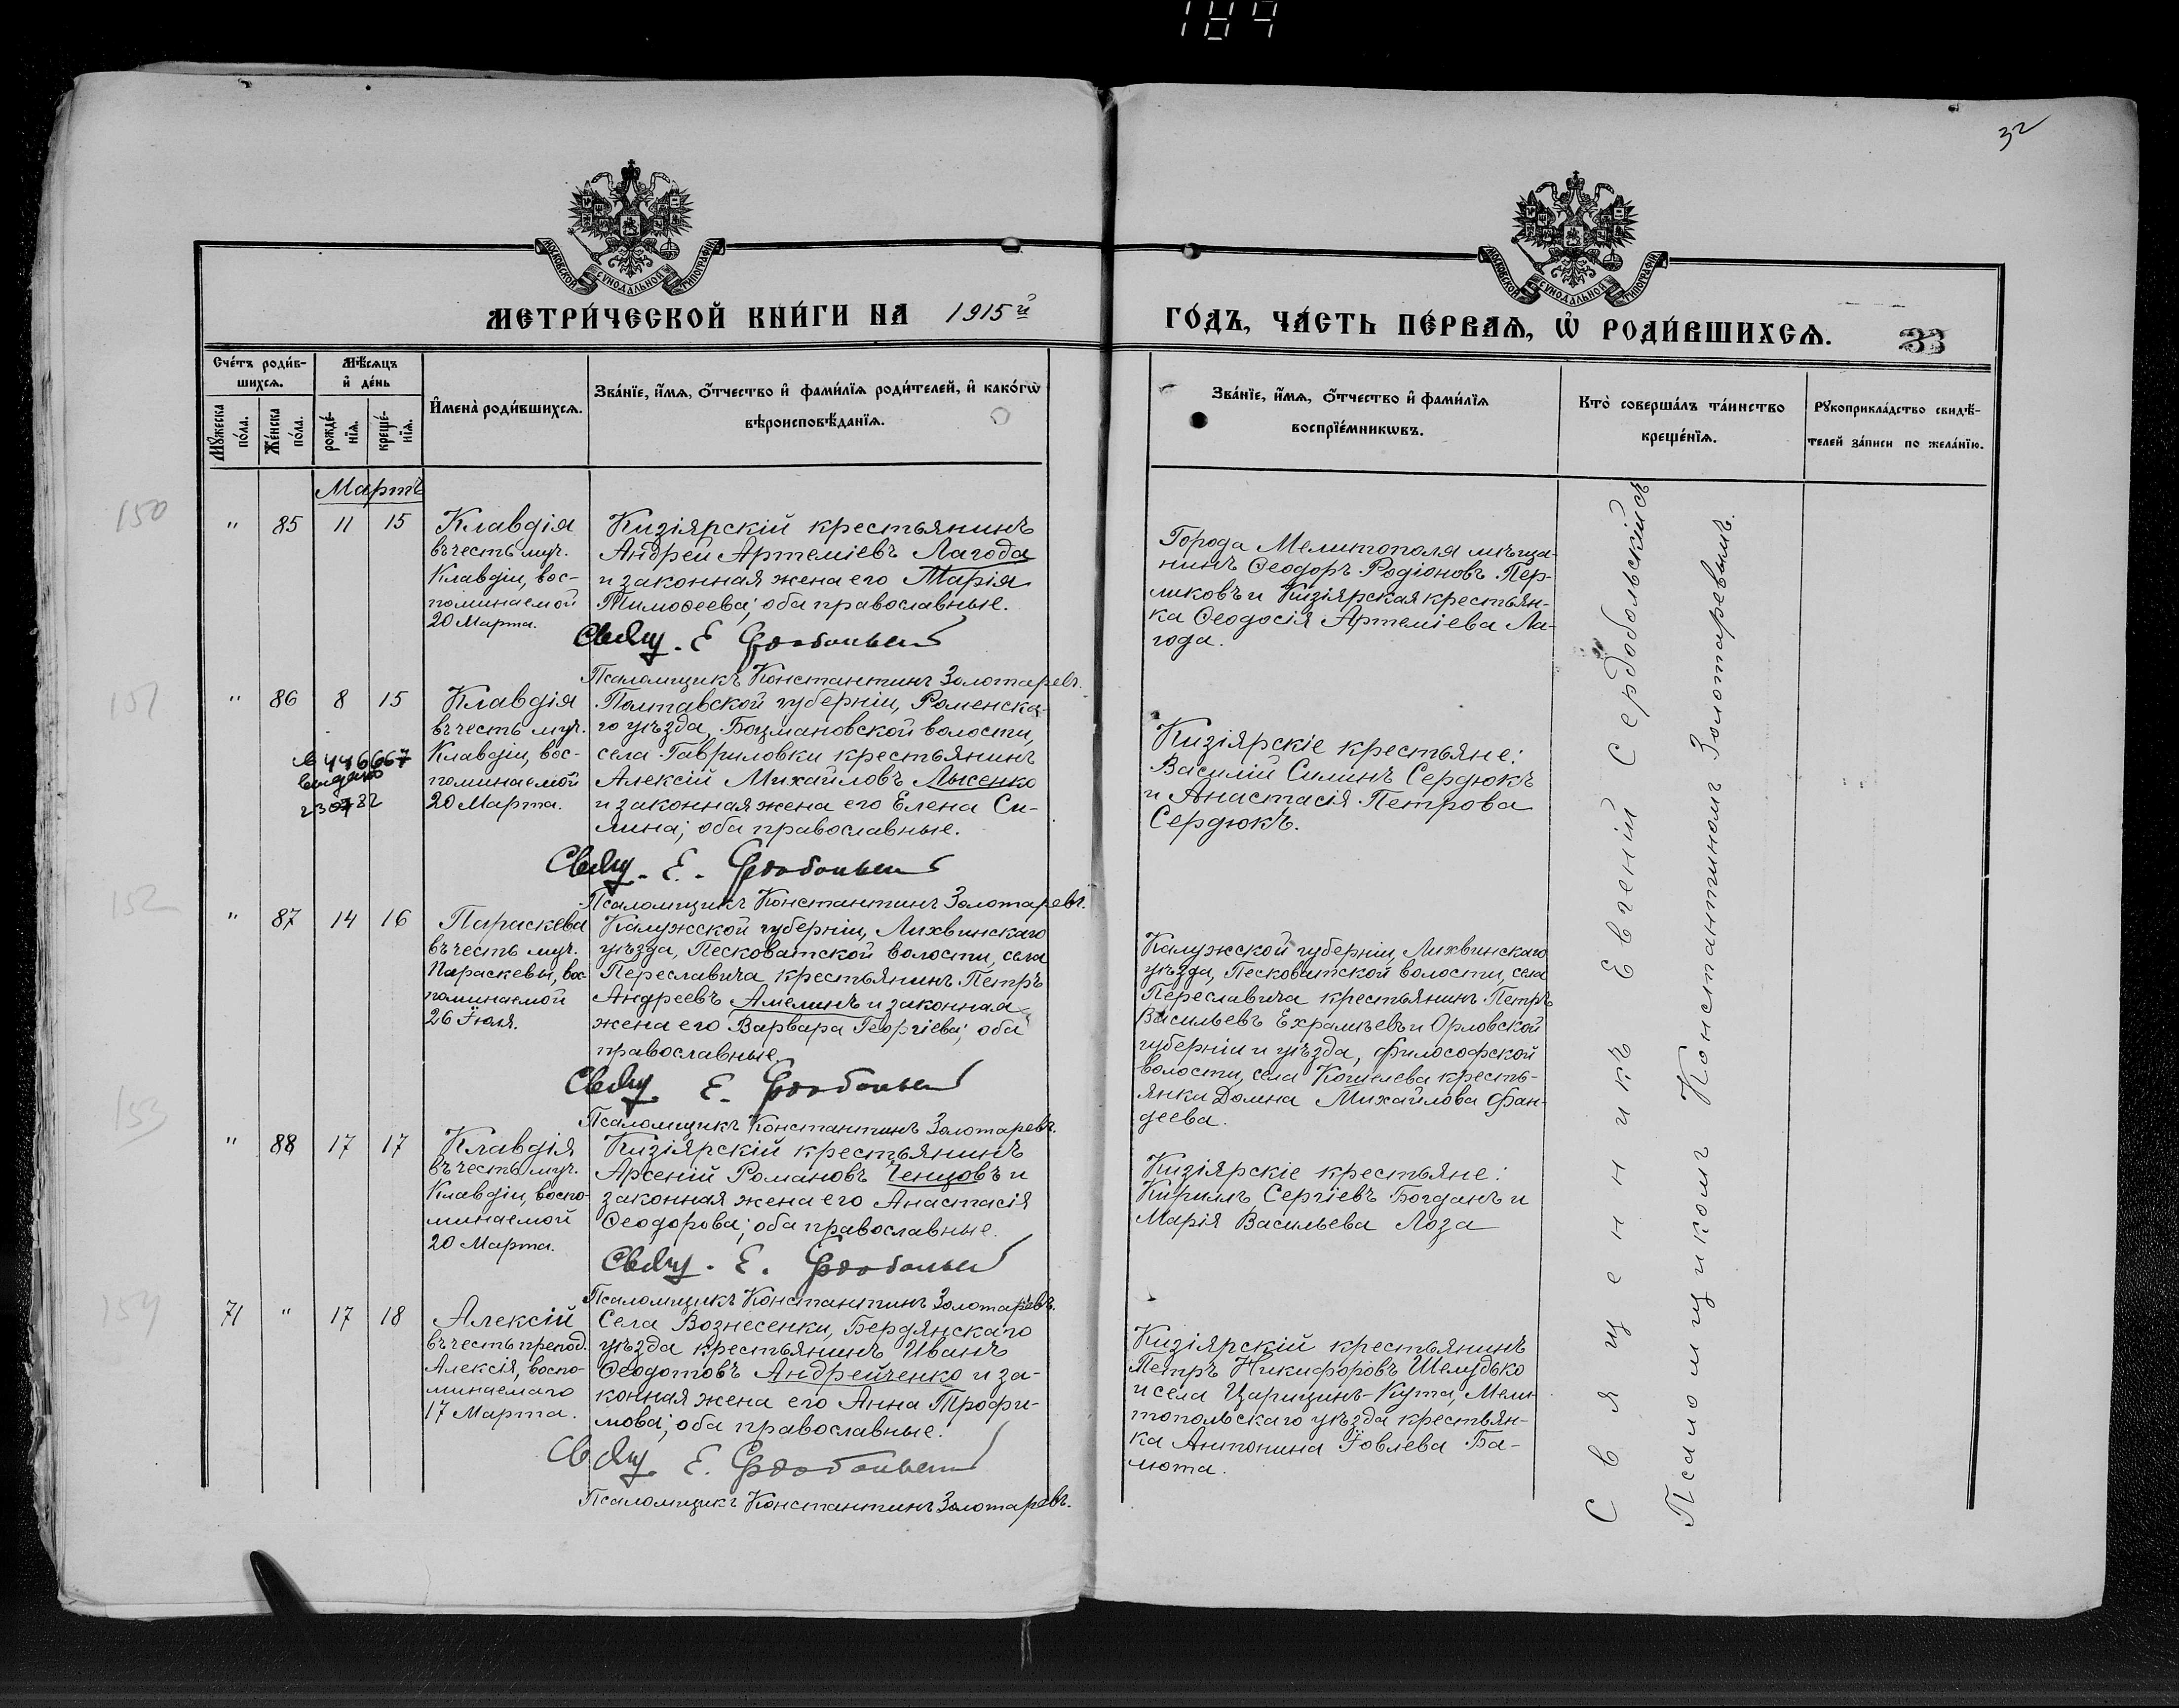 184
32
МОСКОВСКОЙ СУНОДАЛЬНОЙ ТИПОГРАФІИ
МОСКОВСКОЙ СУНОДАЛЬНОЙ ТИПОГРАФІИ
МЕТРИ́ЧЕСКОЙ КНИ́ГИ НА 1915й
ГО́ДЪ, ЧА́СТЬ ПЕ́РВАѦ, Ѡ҆ РОДИ́ВШИХСѦ.
33
Сче́тъ роди́в-
шихсѧ.
Мѣ́сяцъ
и҆ де́нь
Мꙋ́жеска
по́ла.
Же́нска
по́ла.
рожде́-
нїѧ.
креще́-
нїѧ.
И҆мена̀ роди́вшихсѧ.
Зва́нїе, и҆́мѧ, ѻ҆́тчество и҆ фами́лїѧ роди́телей, и҆ како́гѡ
вѣроисповѣ́данїѧ.
Зва́нїе, и҆́мѧ, ѻ҆́тчество и҆ фами́лїѧ
воспрїе́мникѡвъ.
Кто̀ соверша́лъ та́инство
креще́нїѧ.
Рꙋкоприкла́дство свидѣ́-
телей за́писи по жела́нїю.
Мартъ
150
" 85 11 15
Клавдія
въ честь муч.
Клавдіи, вос-
поминаемой
20 Марта.
Кизіярскій крестьянинъ
Андрей Артеміевъ Лагода
и законная жена его Марія
Тимофеева; оба православные.
Свящ. Е Сердобольскій
Псаломщикъ Константинъ Золотаревъ.
Города Мелитополя мѣща-
нинъ Ѳеодоръ Родіоновъ Пер-
ликовъ и Кизіярская крестьян-
ка Ѳеодосія Артеміева Ла-
года.
151
" 86 8 15
Клавдія
въ честь муч.
Клавдіи, вос-
поминаемой
20 Марта.
446667
выдано
230782
Полтавской губерніи, Роменска-
го уѣзда, Боцмановской волости,
села Гавриловки крестьянинъ
Алексій Михайловъ Лысенко
и законная жена его Елена Си-
лина; оба православные.
Свящ. Е. Сердобольскій
Псаломщикъ Константинъ Золотаревъ.
Кизіярскіе крестьяне:
Василій Силинъ Сердюкъ
и Анастасія Петрова
Сердюкъ.
152
" 87 14 16
Параскева
въ честь муч.
Параскевы, вос-
поминаемой
26 Іюля.
Калужской губерніи, Лихвинскаго
уѣзда, Песковатской волости, села
Переславича крестьянинъ Петръ
Андреевъ Амелинъ и законная
жена его Варвара Георгіева; оба
православные.
Свящ. Е. Сердобольскій
Псаломщикъ Константинъ Золотаревъ.
Калужской губерніи, Лихвинскаго
уѣзда, Песковатской волости, села
Переславича крестьянинъ Петръ
Васильевъ Ехрамѣевъ и Орловской
губерніи и уѣзда, Философской
волости, села Кошелева кресть-
янка Домна Михайлова Фан-
деева.
153
" 88 17 17
Клавдія
въ честь муч.
Клавдіи, воспо-
минаемой
20 Марта.
Кизіярскій крестьянинъ
Арсеній Романовъ Ченцовъ и
законная жена его Анастасія
Ѳеодорова; оба православные.
Свящ. Е. Сердобольскій
Псаломщикъ Константинъ Золотаревъ.
Кизіярскіе крестьяне:
Кириллъ Сергіевъ Богданъ и
Марія Васильева Лоза
154
71 " 17 18
Алексій
въ честь препод.
Алексія, воспо-
минаемаго
17 Марта.
Села Вознесенки, Бердянскаго
уѣзда крестьянинъ Иванъ
Ѳеодотовъ Андрейченко и за-
конная жена его Анна Трофи-
мова; оба православные.
Свящ. Е. Сердобольскій
Псаломщикъ Константинъ Золотаревъ.
Кизіярскій крестьянинъ
Петръ Никифоровъ Шелудько
и села Царицинъ-Кута, Мели-
топольскаго уѣзда крестьян-
ка Антонина Іовлева Ба-
мота.
Священникъ Евгеній Сердобольскій съ
Псаломщикомъ Константиномъ Золотаревымъ.